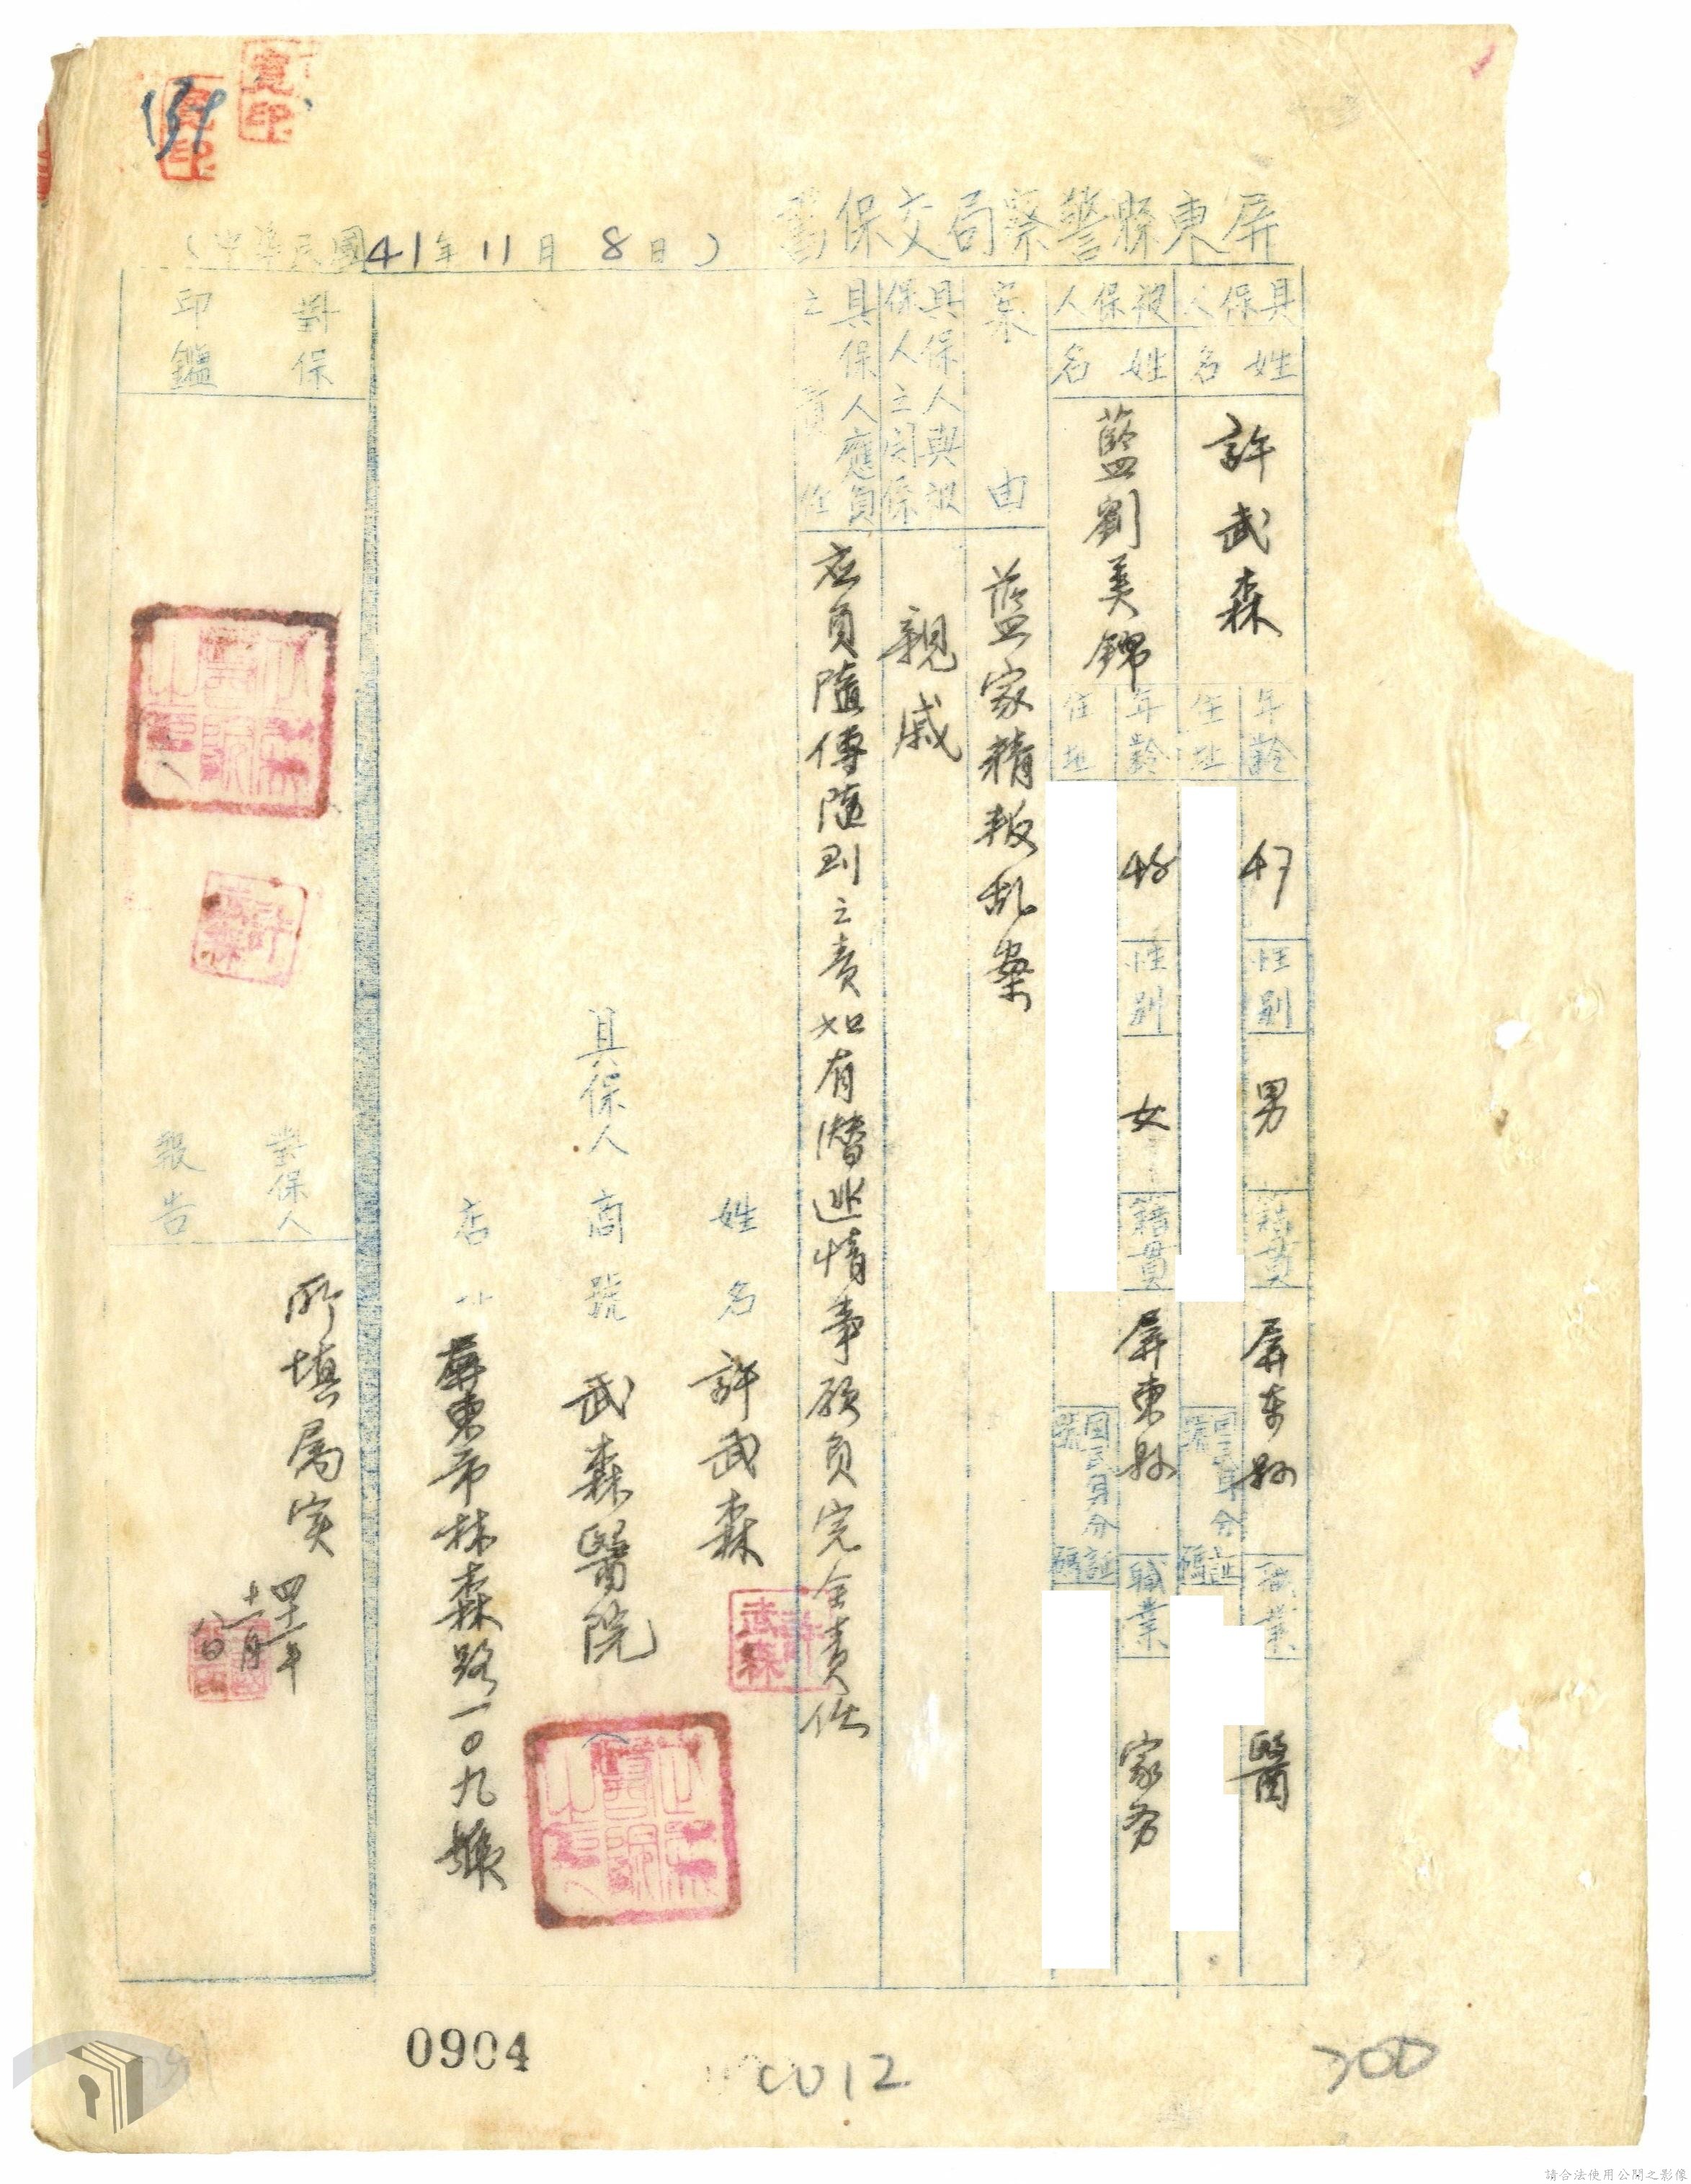 屏東縣警察局交保書
(中華民國41年11月8日)
具保人
姓名
許武森
年齡
47
性別
男
籍貫
屏東縣
職業
醫
住址
國民身分證號碼
被保人
姓名
藍劉美錦
年齡
性別
女
籍貫
屏東縣
職業
家务
住址
國民身分證號碼
案由
藍家精叛乱案
具保人與被保人之關係
親戚
具保人應負之責任
應負隨傳隨到之責如有潛逃情事願負完全責任
姓名 許武森
許武森
具保人 商號 武森醫院
店 屏東市林森路一〇九號
對保印鑑
對保人報告
所填屬实
四十一年
十一月
八日
0904
0012
300
139
請合法使用公開之影像